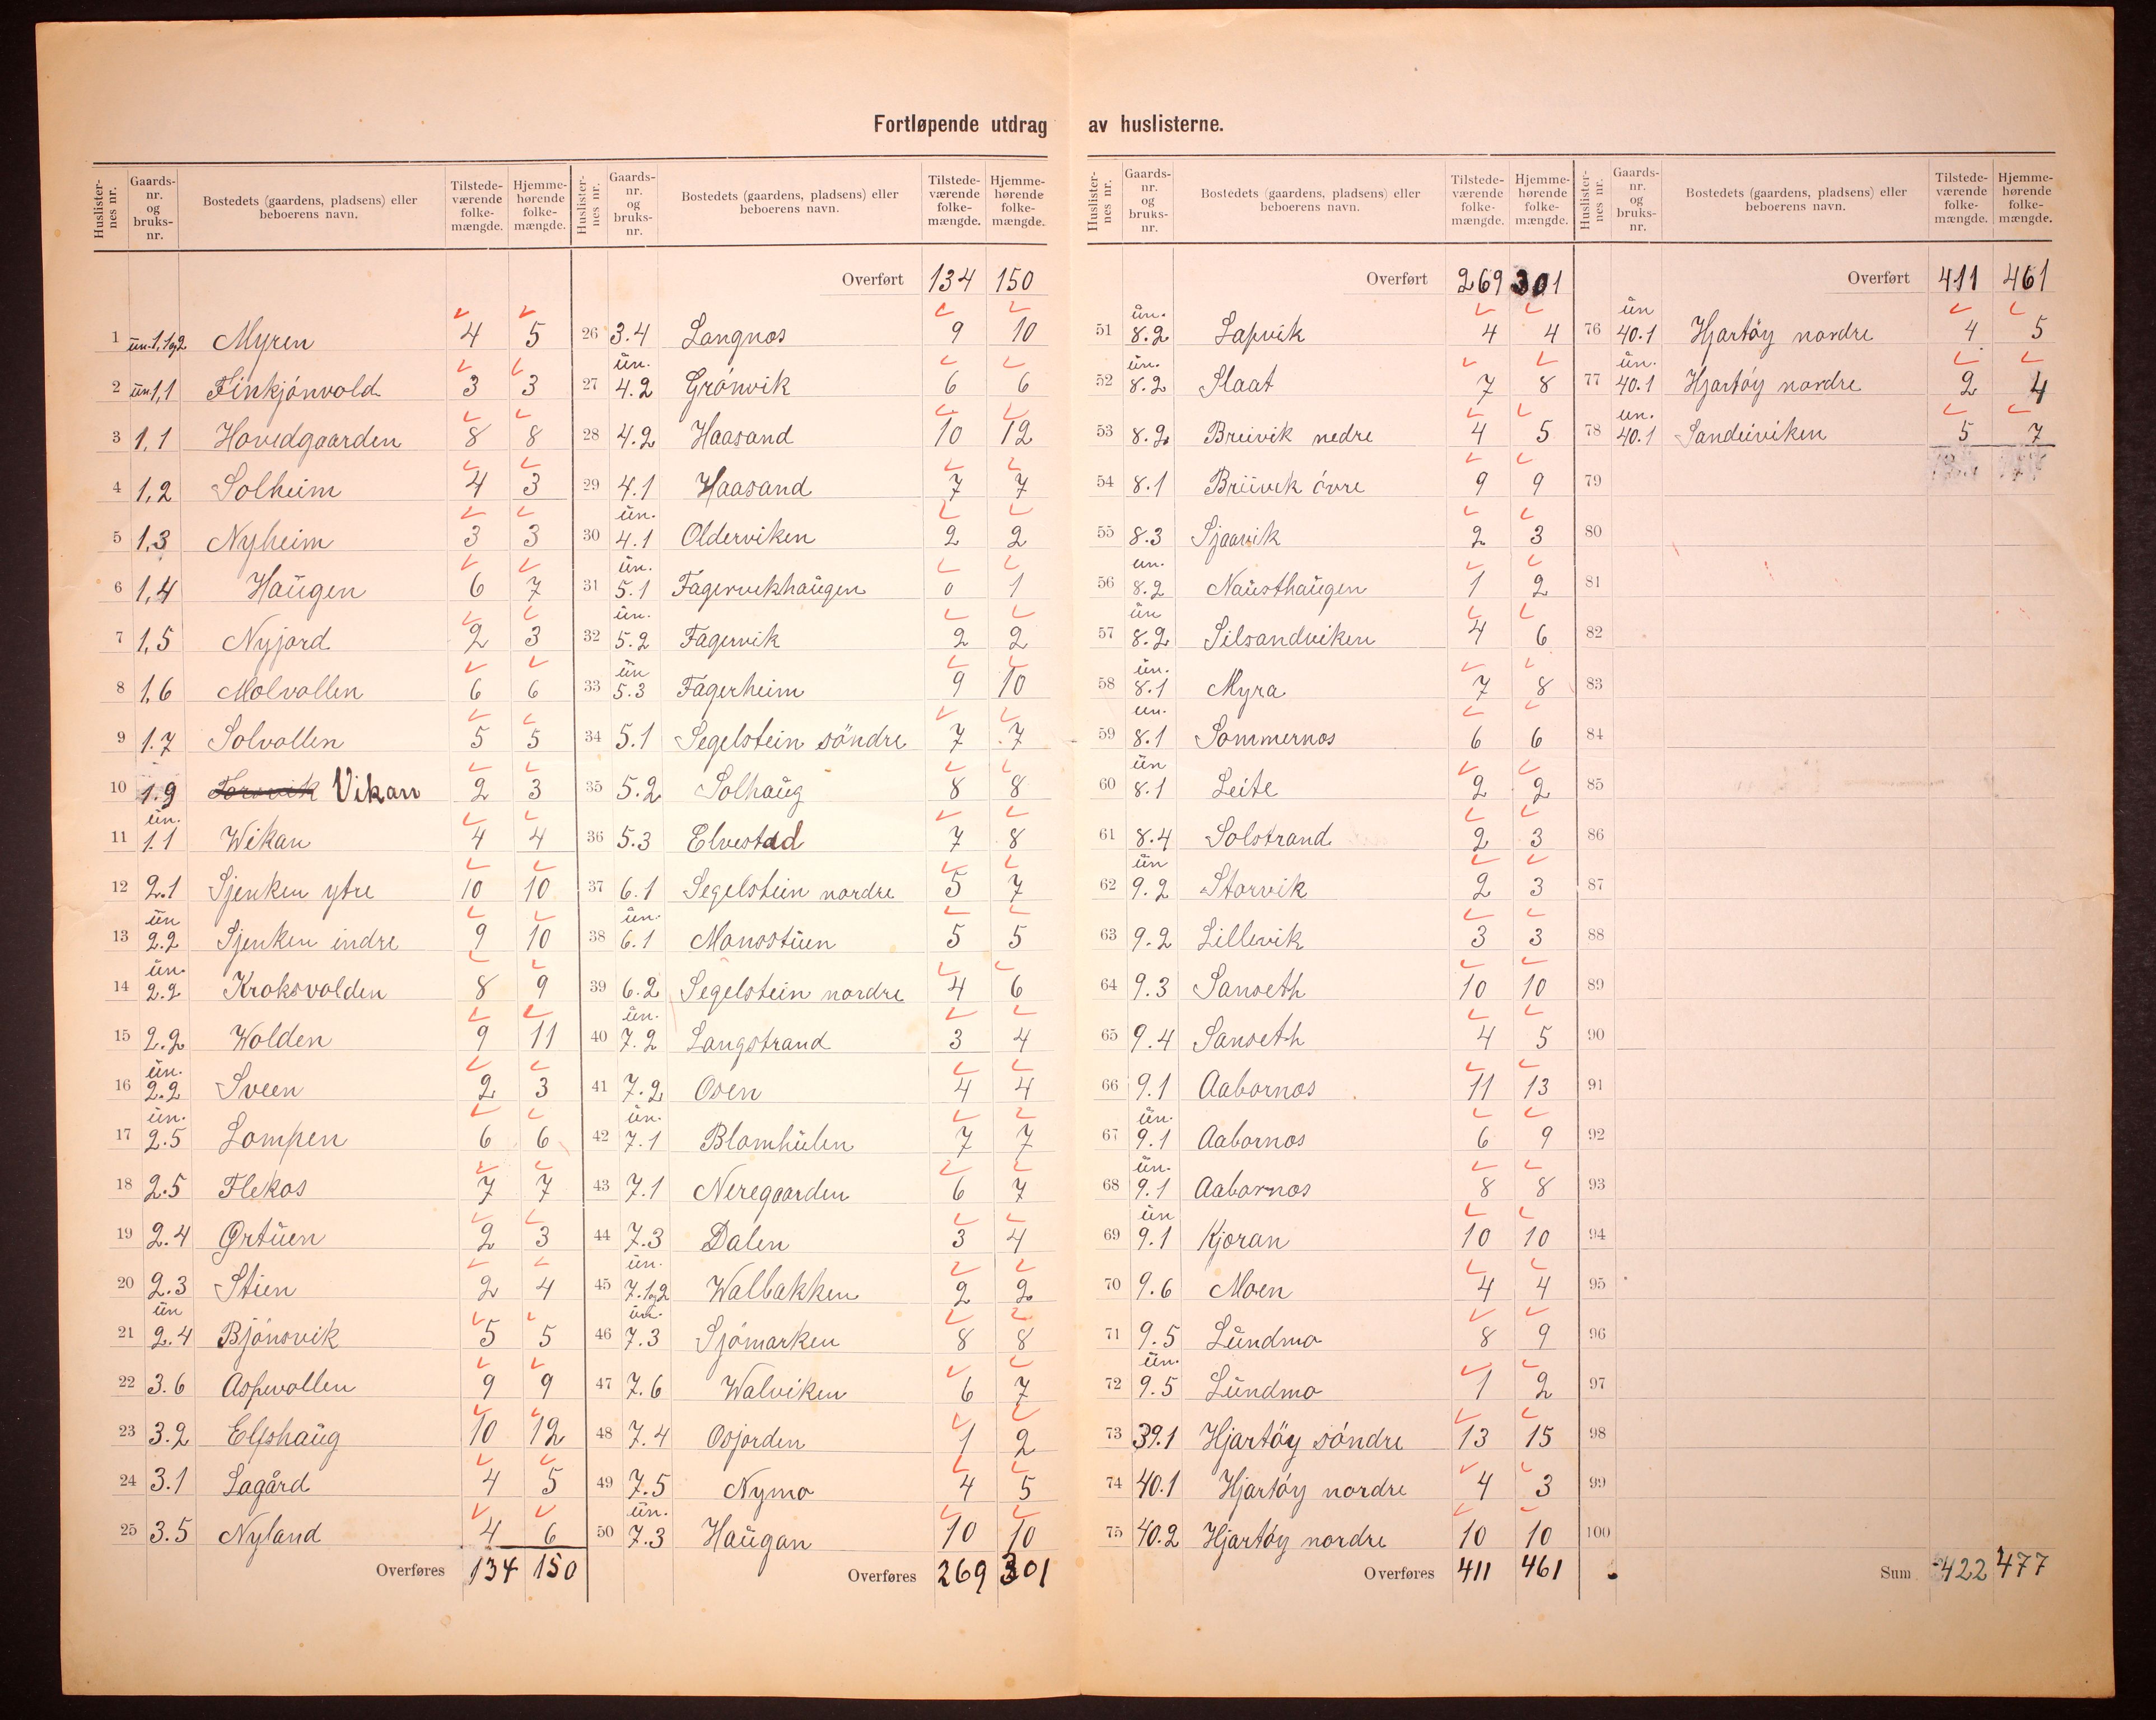 Fortløpende utdrag av huslisterne.
Huslisternes nr. Gaards-nr. og bruks-nr. Bostedets (gaardens, pladsens) eller beboerens navn. Tilstedeværende folkemængde. Hjemmehørende folkemængde.
1 un. 1,1og2 Myren 4 5
2 un 1,1 Finkjönvold 3 3
3 1,1 Hovedgaarden 8 8
4 1,2 Solheim 4 3
5 1,3 Nyheim 3 3
6 1,4 Haugen 6 7
7 1,5 Nyjord 2 3
8 1,6 Molvollen 6 6
9 1.7 Solvollen 5 5
10 1.9 Vikan 2 3
11 un. 1.1 Wikan 4 4
12 2.1 Sjenken ytre 10 10
13 un 2.2 Sjenken indre 9 10
14 un. 2.2 Kroksvolden 8 9
15 2.2 Wolden 9 11
16 un. 2.2 Sveen 2 3
17 un. 2.5 Lompen 6 6
18 2.5 Flekos 7 7
19 2.4 Ørtuen 2 3
20 2.3 Stien 2 4
21 un 2.4 Bjönsvik 5 5
22 3.6 Aspevollen 9 9
23 3.2 Elfshaug 10 12
24 3.1 Lagård 4 5
25 3.5 Nyland 4 6
Overføres 134 150
Huslisternes nr. Gaards-nr. og bruks-nr. Bostedets (gaardens, pladsens) eller beboerens navn. Tilstedeværende folkemængde. Hjemmehørende folkemængde.
Overført 134 150
26 3.4 Langnos 9 10
27 un. 4.2 Grönvik 6 6
28 4.2 Haasand 10 12
29 4.1 Haasand 7 7
30 un. 4.1 Olderviken 2 2
31 un. 5.1 Fagervikhaugen 0 1
32 un. 5.2 Fagervik 2 2
33 un 5.3 Fagerheim 9 10
34 5.1 Segelstein söndre 7 7
35 5.2 Solhaug 8 8
36 5.3 Elvestad 7 8
37 6.1 Segelstein nordre 5 7
38 un. 6.1 Monsstuen 5 5
39 6.2 Segelstein nordre 4 6
40 un. 7.2 Langstrand 3 4
41 7.2 Osen 4 4
42 un. 7.1 Blomhulen 7 7
43 7.1 Neregaarden 6 7
44 7.3 Dalen 3 4
45 un. 7.1og2 Walbakken 2 2
46 un. 7.3 Sjömarken 8 8
47 7.6 Walviken 6 7
48 7.4 Osjorden 1 2
49 7.5 Nymo 4 5
50 un. 7.3 Haugan 10 10
Overføres 269 301
Huslisternes nr. Gaards-nr. og bruks-nr. Bostedets (gaardens, pladsens) eller beboerens navn. Tilstedeværende folkemængde. Hjemmehørende folkemængde.
Overført 269 301
51 un. 8.2 Lapvik 4 4
52 un. 8.2 Slaat 7 8
53 8.2 Breivik nedre 4 5
54 8.1 Breivik övre 9 9
55 8.3 Sjaavik 2 3
56 un. 8.2 Nausthaugen 1 2
57 un 8.2 Silsandviken 4 6
58 un. 8.1 Myra 7 8
59 un. 8.1 Sommernos 6 6
60 un 8.1 Leite 2 2
61 8.4 Solstrand 2 3
62 un 9.2 Storvik 2 3
63 9.2 Lillevik 3 3
64 9.3 Sanseth 10 10
65 9.4 Sanseth 4 5
66 9.1 Aabornos 11 13
67 un. 9.1 Aabornos 6 9
68 un. 9.1 Aabornos 8 8
69 un 9.1 Kjoran 10 10
70 9.6 Moen 4 4
71 9.5 Lundmo 8 9
72 un. 9.5 Lundmo 1 2
73 39.1 Hjartöy söndre 13 15
74 40.1 Hjartöy nordre 4 3
75 40.2 Hjartöy nordre 10 10
Overføres 411 461
Huslisternes nr. Gaards-nr. og bruks-nr. Bostedets (gaardens, pladsens) eller beboerens navn. Tilstedeværende folkemængde. Hjemmehørende folkemængde.
Overført 411 461
76 un 40.1 Hjartöy nordre 4 5
77 un. 40.1 Hjartöy nordre 2 4
78 un. 40.1 Sandeviken 5 7
79
80
81
82
83
84
85
86
87
88
89
90
91
92
93
94
95
96
97
98
99
100
Sum 422 477